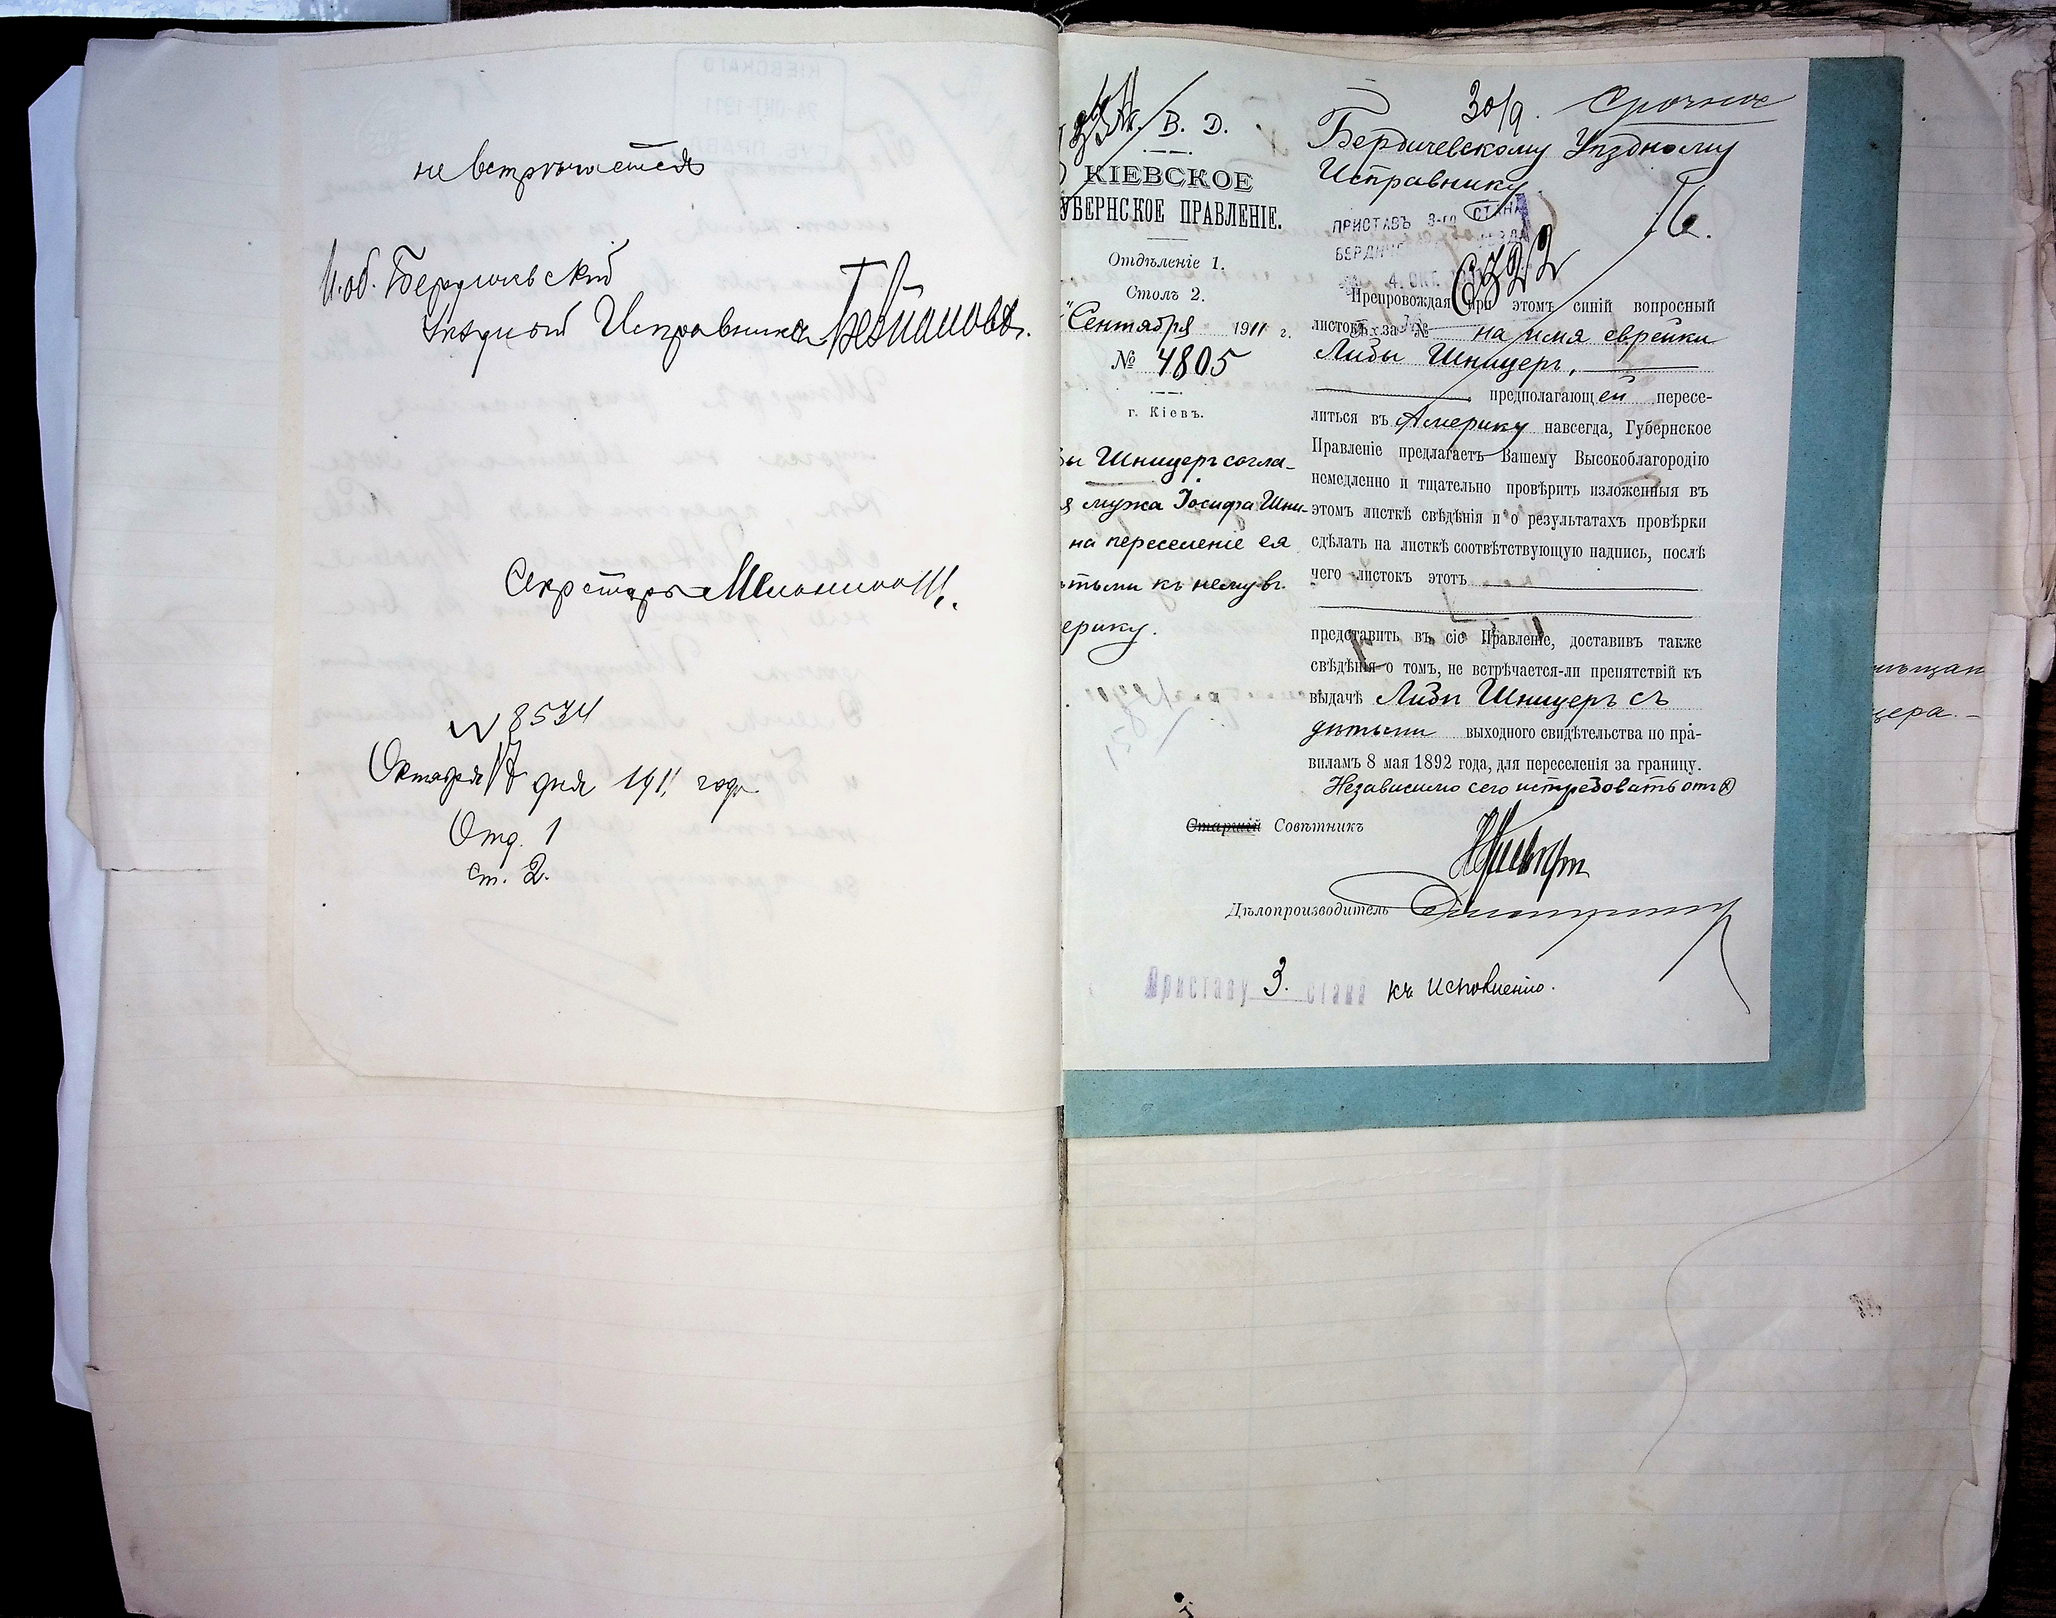 не встрѣчается
И. об. Бердичевскій
Уѣздный Исправника
Секретарь
№ 8534
Октября 17 дня 1911 года
Отд. 1
ст. 2.
В. Д.
КІЕВСКОЕ
УБЕРНСКОЕ ПРАВЛЕНІЕ.
Отдѣленіе 1.
Столъ 2.
Сентября 1911 г.
№ 4805
г. Кіевъ.
Шницеръ согла-
мужа Іосифа Шни-
на переселеніе ея
ѣтьми къ нему въ
ерику.
30/9. Срочное
Бердичевскому Уѣздному
Исправнику.
ПРИСТАВЪ 3-го СТАНА
4. ОКТ.
6322
Препровождая при этомъ синій вопросный
листокъ за № на имя еврейки
Либы Шницеръ,
предполагающей пересе-
литься въ Америку навсегда, Губернское
Правленіе предлагаетъ Вашему Высокоблагородію
немедленно и тщательно провѣрить изложенныя въ
этомъ листкѣ свѣдѣнія и о результатахъ провѣрки
сдѣлать на листкѣ соотвѣтствующую надпись, послѣ
чего листокъ этотъ
представить въ сіе Правленіе, доставивъ также
свѣдѣнія о томъ, не встрѣчается-ли препятствій къ
выдачѣ Либѣ Шницеръ съ
дѣтьми выходного свидѣтельства по пра-
виламъ 8 мая 1892 года, для переселенія за границу.
Независимо сего истребовать отъ
Старшій Совѣтникъ
Дѣлопроизводитель
Приставу 3. стана къ исполненію.
ѣщан
цера.